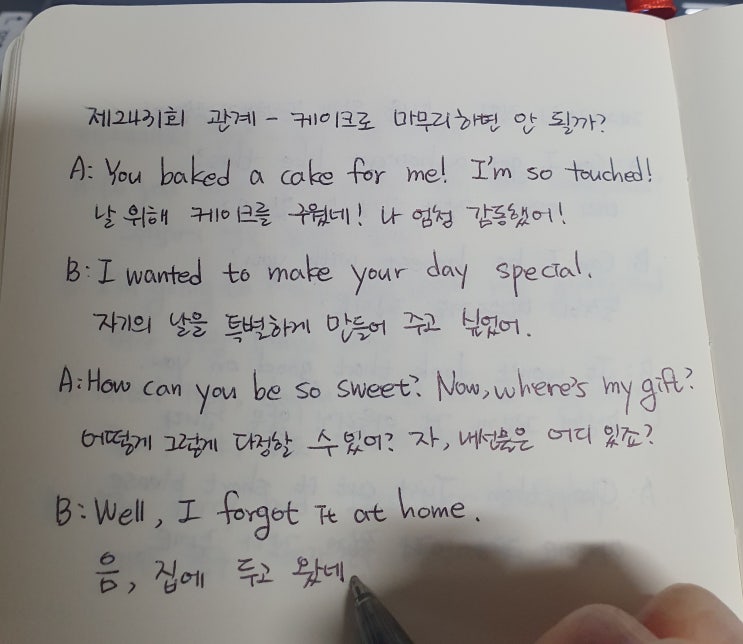 제2431회 관계 - 케이크로 마무리하면 안 될까?
A: You baked a cake for me! I'm so touched!
날 위해 케이크를 구웠네! 나 엄청 감동했어!
B: I wanted to make your day special.
자기의 날을 특별하게 만들어 주고 싶었어.
A: How can you be so sweet? Now, where's my gift?
어떻게 그렇게 다정할 수 있어? 자, 내 선물은 어디 있죠?
B: Well, I forgot It at home.
음, 집에 두고 왔네